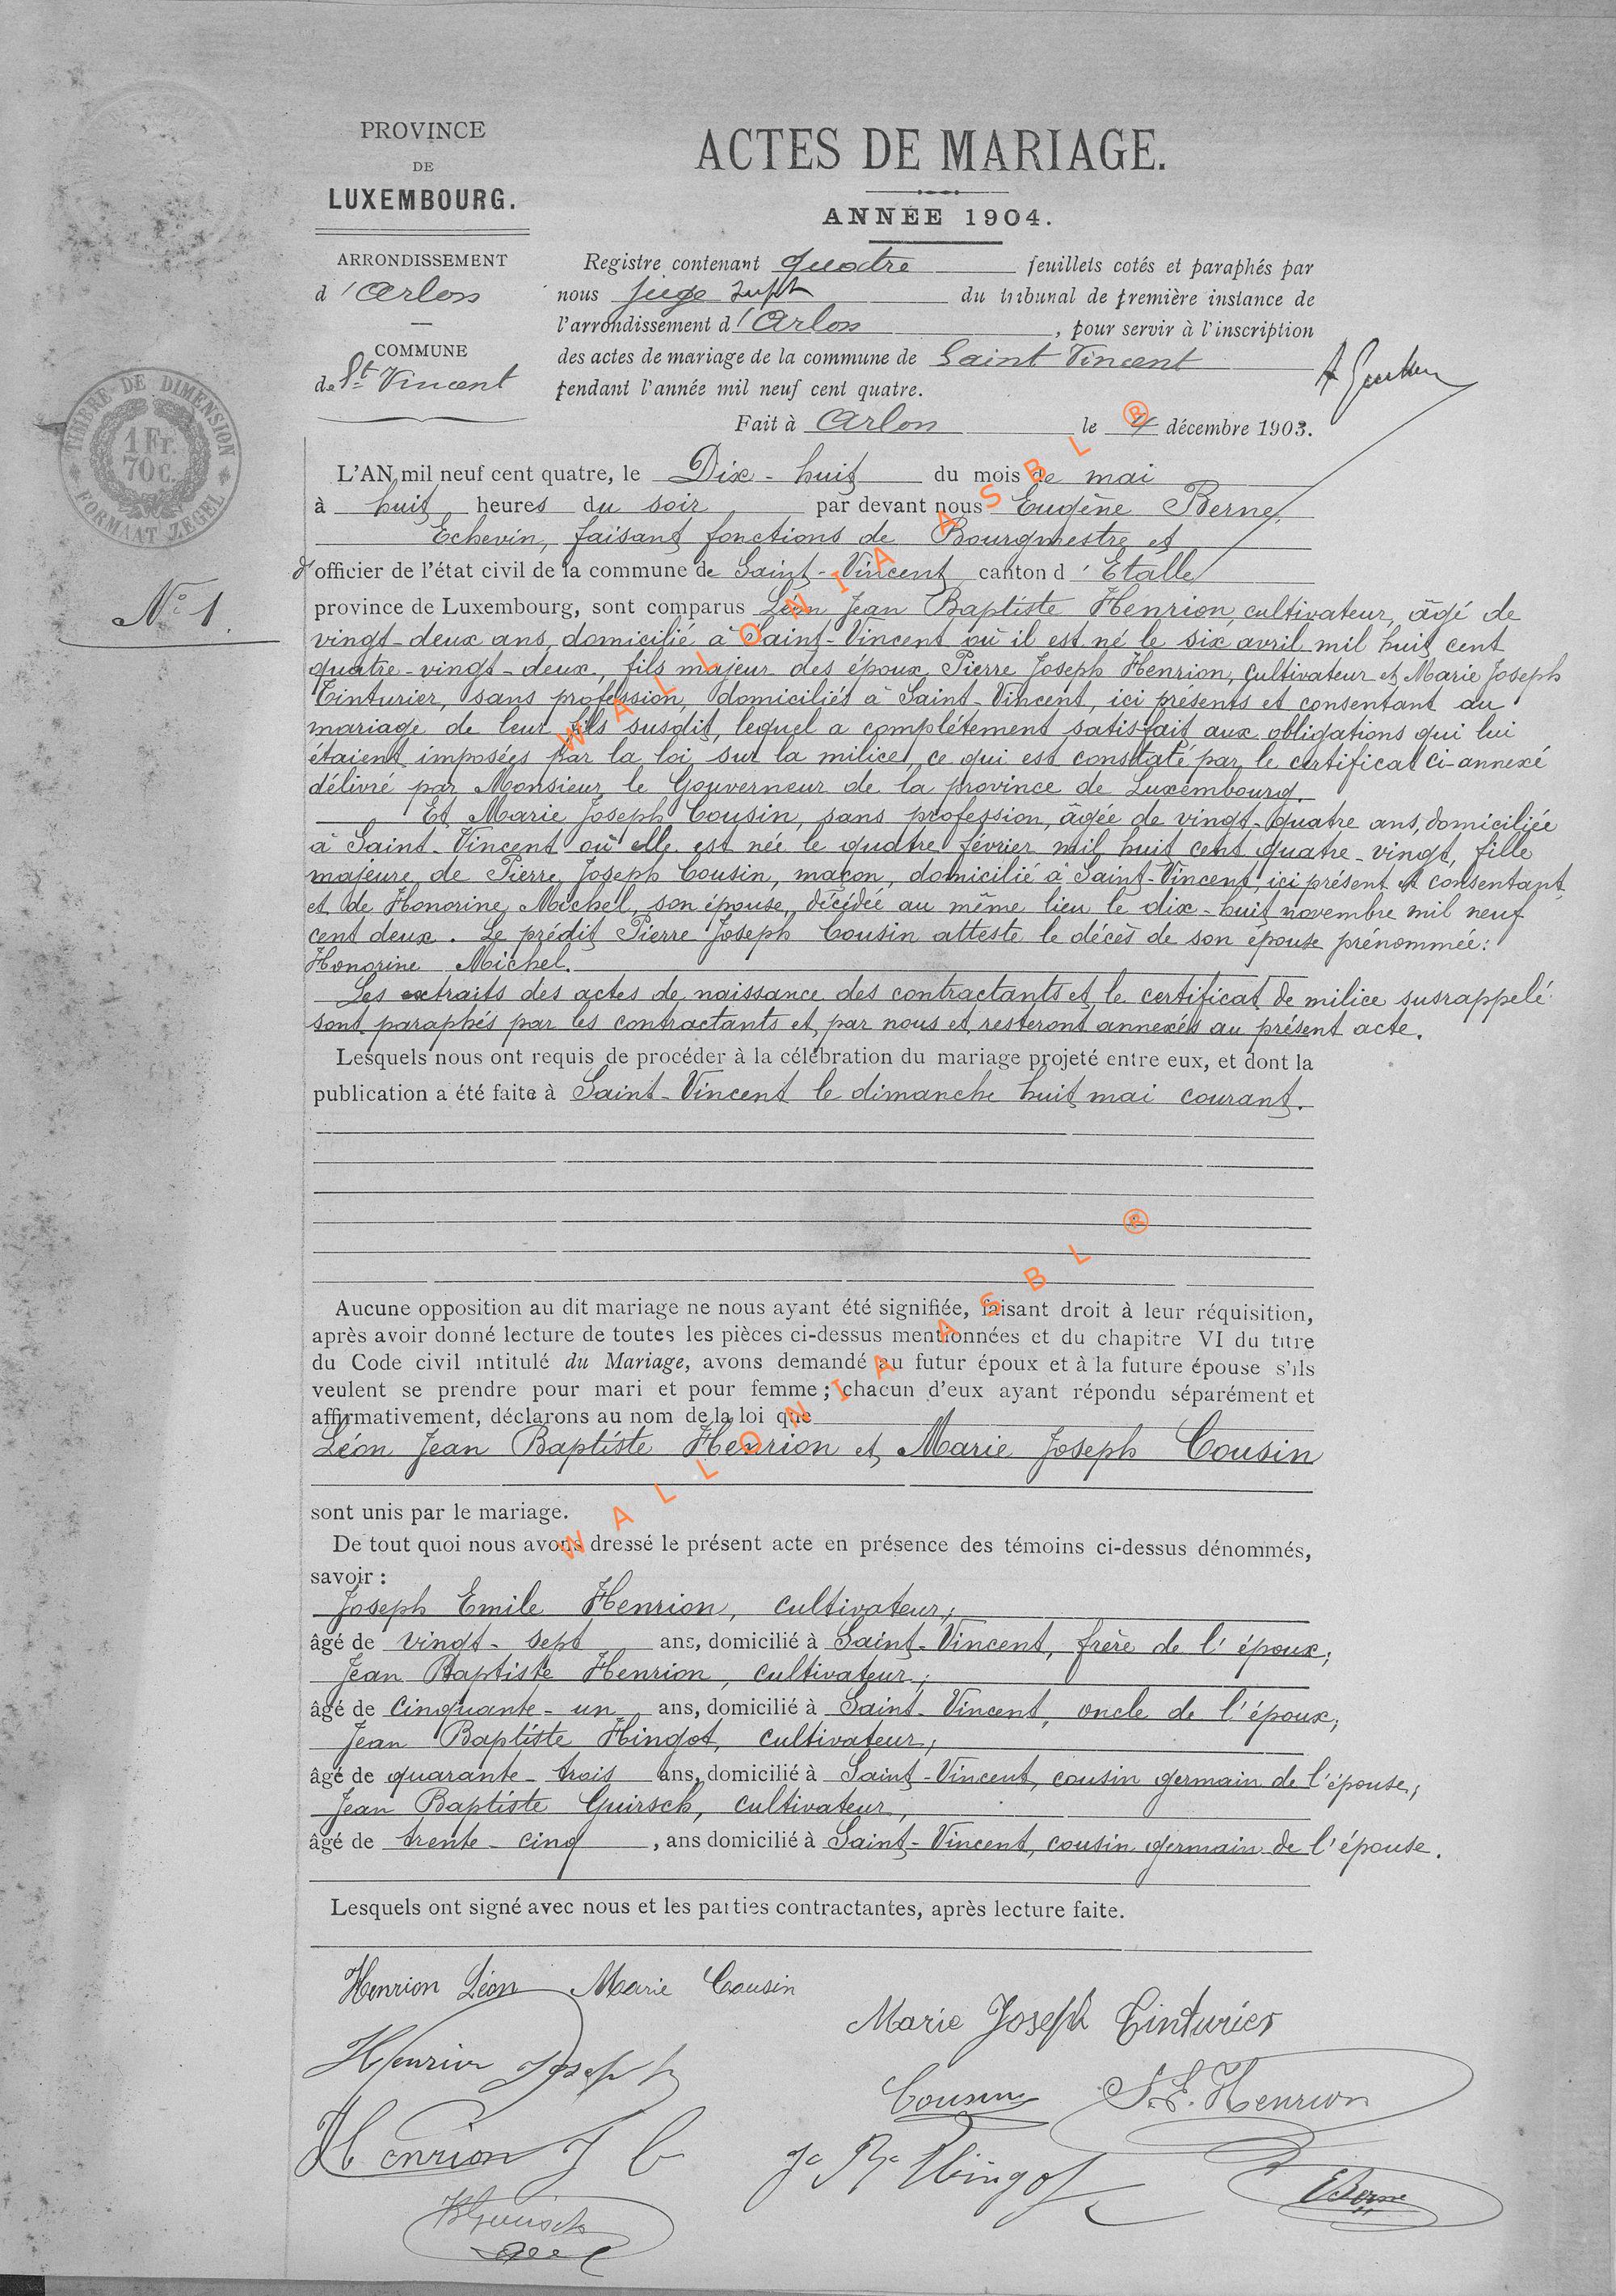 PROVINCE
DE
LUXEMBOURG.
ARRONDISSEMENT
d'Arlon
COMMUNE
de St Vincent
TIMBRE DE DIMENSION
1 Fr.
70 C.
FORMAAT ZEGEL
N° 1.
ACTES DE MARIAGE.
ANNÉE 1904.
Registre contenant quatre feuillets cotés et paraphés par
nous juge supt du tribunal de première instance de
l'arrondissement d'Arlon, pour servir à l'inscription
des actes de mariage de la commune de Saint Vincent
pendant l'année mil neuf cent quatre.
Fait à Arlon le 4 décembre 1903.
L'AN mil neuf cent quatre, le Dix-huit du mois de mai
à huit heures du soir par devant nous Eugène Berne,
Echevin, faisant fonctions de Bourgmestre et
d'officier de l'état civil de la commune de Saint-Vincent canton d'Etalle
province de Luxembourg, sont comparus Léon Jean Baptiste Henrion, cultivateur, âgé de
vingt-deux ans, domicilié à Saint-Vincent où il est né le six avril mil huit cent
quatre-vingt-deux, fils majeur des époux Pierre Joseph Henrion, cultivateur et Marie Joseph
Tinturier, sans profession, domiciliés à Saint-Vincent, ici présents et consentant au
mariage de leur fils susdit, lequel a complétement satisfait aux obligations qui lui
étaient imposées par la loi sur la milice, ce qui est constaté par le certificat ci-annexé
délivré par Monsieur le Gouverneur de la province de Luxembourg.
Et Marie Joseph Cousin, sans profession, âgée de vingt-quatre ans, domiciliée
à Saint-Vincent où elle est née le quatre février mil huit cent quatre-vingt, fille
majeure de Pierre Joseph Cousin, maçon, domicilié à Saint-Vincent, ici présent et consentant,
et de Honorine Michel, son épouse, décédée au même lieu le dix-huit novembre mil neuf
cent deux. Le prédit Pierre Joseph Cousin atteste le décès de son épouse prénommée:
Honorine Michel.
Les extraits des actes de naissance des contractants et le certificat de milice susrappelé
sont paraphés par les contractants et par nous et resteront annexés au présent acte.
Lesquels nous ont requis de procéder à la célébration du mariage projeté entre eux, et dont la
publication a été faite à Saint-Vincent le dimanche huit mai courant.
Aucune opposition au dit mariage ne nous ayant été signifiée, faisant droit à leur réquisition,
après avoir donné lecture de toutes les pièces ci-dessus mentionnées et du chapitre VI du titre
du Code civil intitulé du Mariage, avons demandé au futur époux et à la future épouse s'ils
veulent se prendre pour mari et pour femme ; chacun d'eux ayant répondu séparément et
affirmativement, déclarons au nom de la loi que
Léon Jean Baptiste Henrion et Marie Joseph Cousin
sont unis par le mariage.
De tout quoi nous avons dressé le présent acte en présence des témoins ci-dessus dénommés,
savoir :
Joseph Emile Henrion, cultivateur,
âgé de vingt-sept ans, domicilié à Saint-Vincent, frère de l'époux;
Jean Baptiste Henrion, cultivateur;
âgé de cinquante-un ans, domicilié à Saint-Vincent, oncle de l'époux;
Jean Baptiste Hingot, cultivateur,
âgé de quarante-trois ans, domicilié à Saint-Vincent, cousin germain de l'épouse;
Jean Baptiste Guirsch, cultivateur,
âgé de trente-cinq, ans domicilié à Saint-Vincent, cousin germain de l'épouse.
Lesquels ont signé avec nous et les parties contractantes, après lecture faite.
Henrion Léon Marie Cousin
Marie Joseph Tinturier
Henrion Joseph
Cousin J.E. Henrion
Henrion J B
Jn Bte Hingot
EBerne
JBGuirsch
WALLONIA ASBL ®
WALLONIA ASBL ®